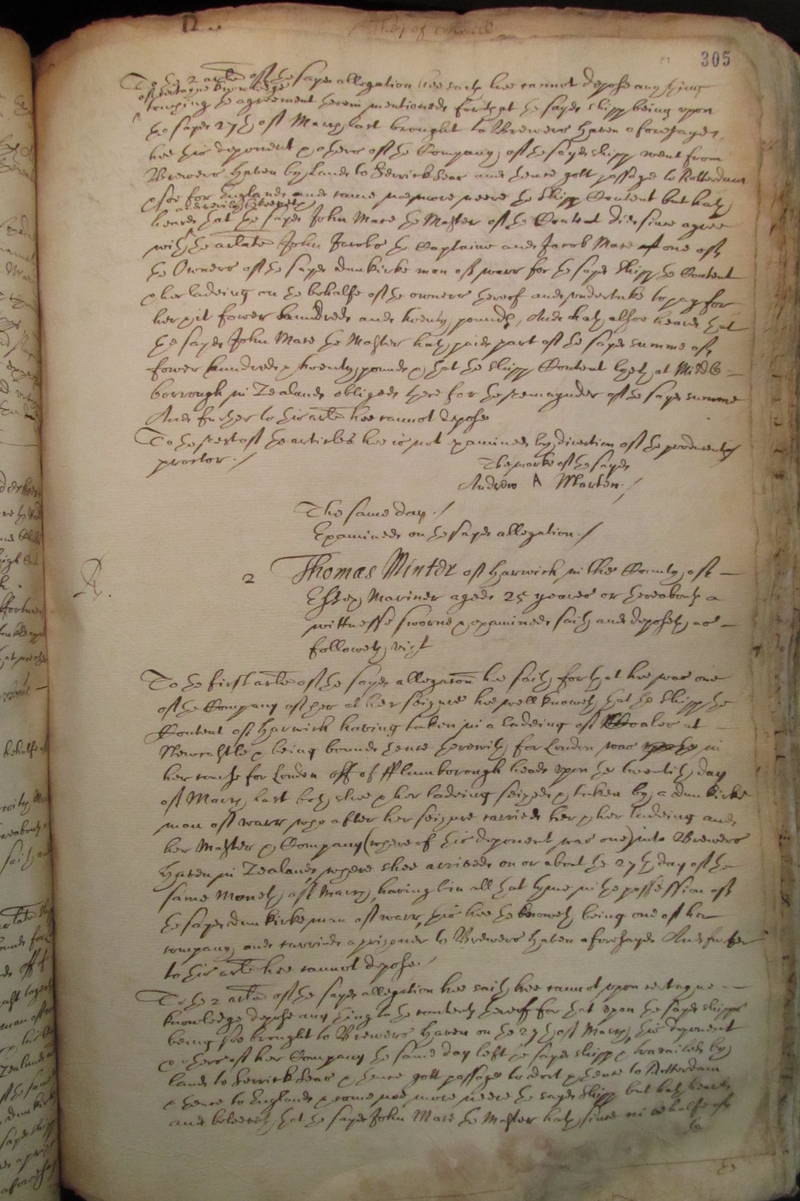 305
To the 2 article of the sayd allegation hee saith hee cannot depose any thing
of certayne knowledge
touching the agreement therein mentioned for that the sayd shipp being upon
the sayd 27th of March last brought to Brewers haven aforesayd,
hee this deponent and others of the Company of the sayd shipp went from
Brewers haven by land to and thence gott passage to Rotterdam
soe for England and came noe more neere the shipp Content but hath
and verily beleeveth
heard that the sayd John Mace the Master of the Content did since agree
with the arlate John Jacobs the Captaine and Jacob Mace one of
the Owners of the sayd dunkirke man of warr for the sayd shipp the Content
and her ladeing on the behalfe of the owners thereof and undertake to pay for
her yt fower hundred and twenty pounds, And hath alsoe heard that
the sayd John Mace the Master hath paid part of the sayd summe of
fower hundred and twenty pounds and that the shipp Content lyeth at Midd
borrough in Zealand obliged there for the remaynder of the sayd summe
And further to this article hee cannot depose
To the rest of the articles hee is not examined by direction of the producents
proctor./
The marke of the sayd
Andrew A Marten./
The same day./
Examined on the sayd allegation./
2 Thomas Minter of Harwich in the County of
Essex Mariner aged 25 yeares or thereabouts a
wittnesse sworne and examined saith and deposeth as
followeth, vizt
To the first article of the sayd allegation hee saith for that hee was one
of the Company of her at her seizure hee well knoweth that the shipp the
Content of Harwich having taken in a ladeing of Coales at
Newcastle and being bound thence therewith for London was in
her course for London off of fflamborough head upon the twentith day
of March last both shee and her ladeing seized and taken by a dunkirke
man of warr who after her seizure carried her and her ladeing and
her Master and Company (whereof this deponent was one) into Brewers
Haven in Zealand, where shee arrived on or about the 27th day of the
same Moneth of March, having bin all that tyme in the possession of
the sayd dunkirke man of warr, this hee knoweth being one of her
company and carried a prisoner to Brewers haven aforesayd And further
to this article hee cannot depose./
To the 2 article of the sayd allegation hee saith hee cannot upon certayne
knowledge depose any thing to the contents thereof for that upon the sayd shipps
being soe brought to Brewers haven on the 27th of March, this deponent
and others of her Company the same day left the sayd shipp and travailed by
land to and thence gott passage to and thence to Rotterdam
and thence to England and came noe more neere the sayd shipp but hath heard
and beleeveth that the sayd John Mace the Master hath since in behalfe of